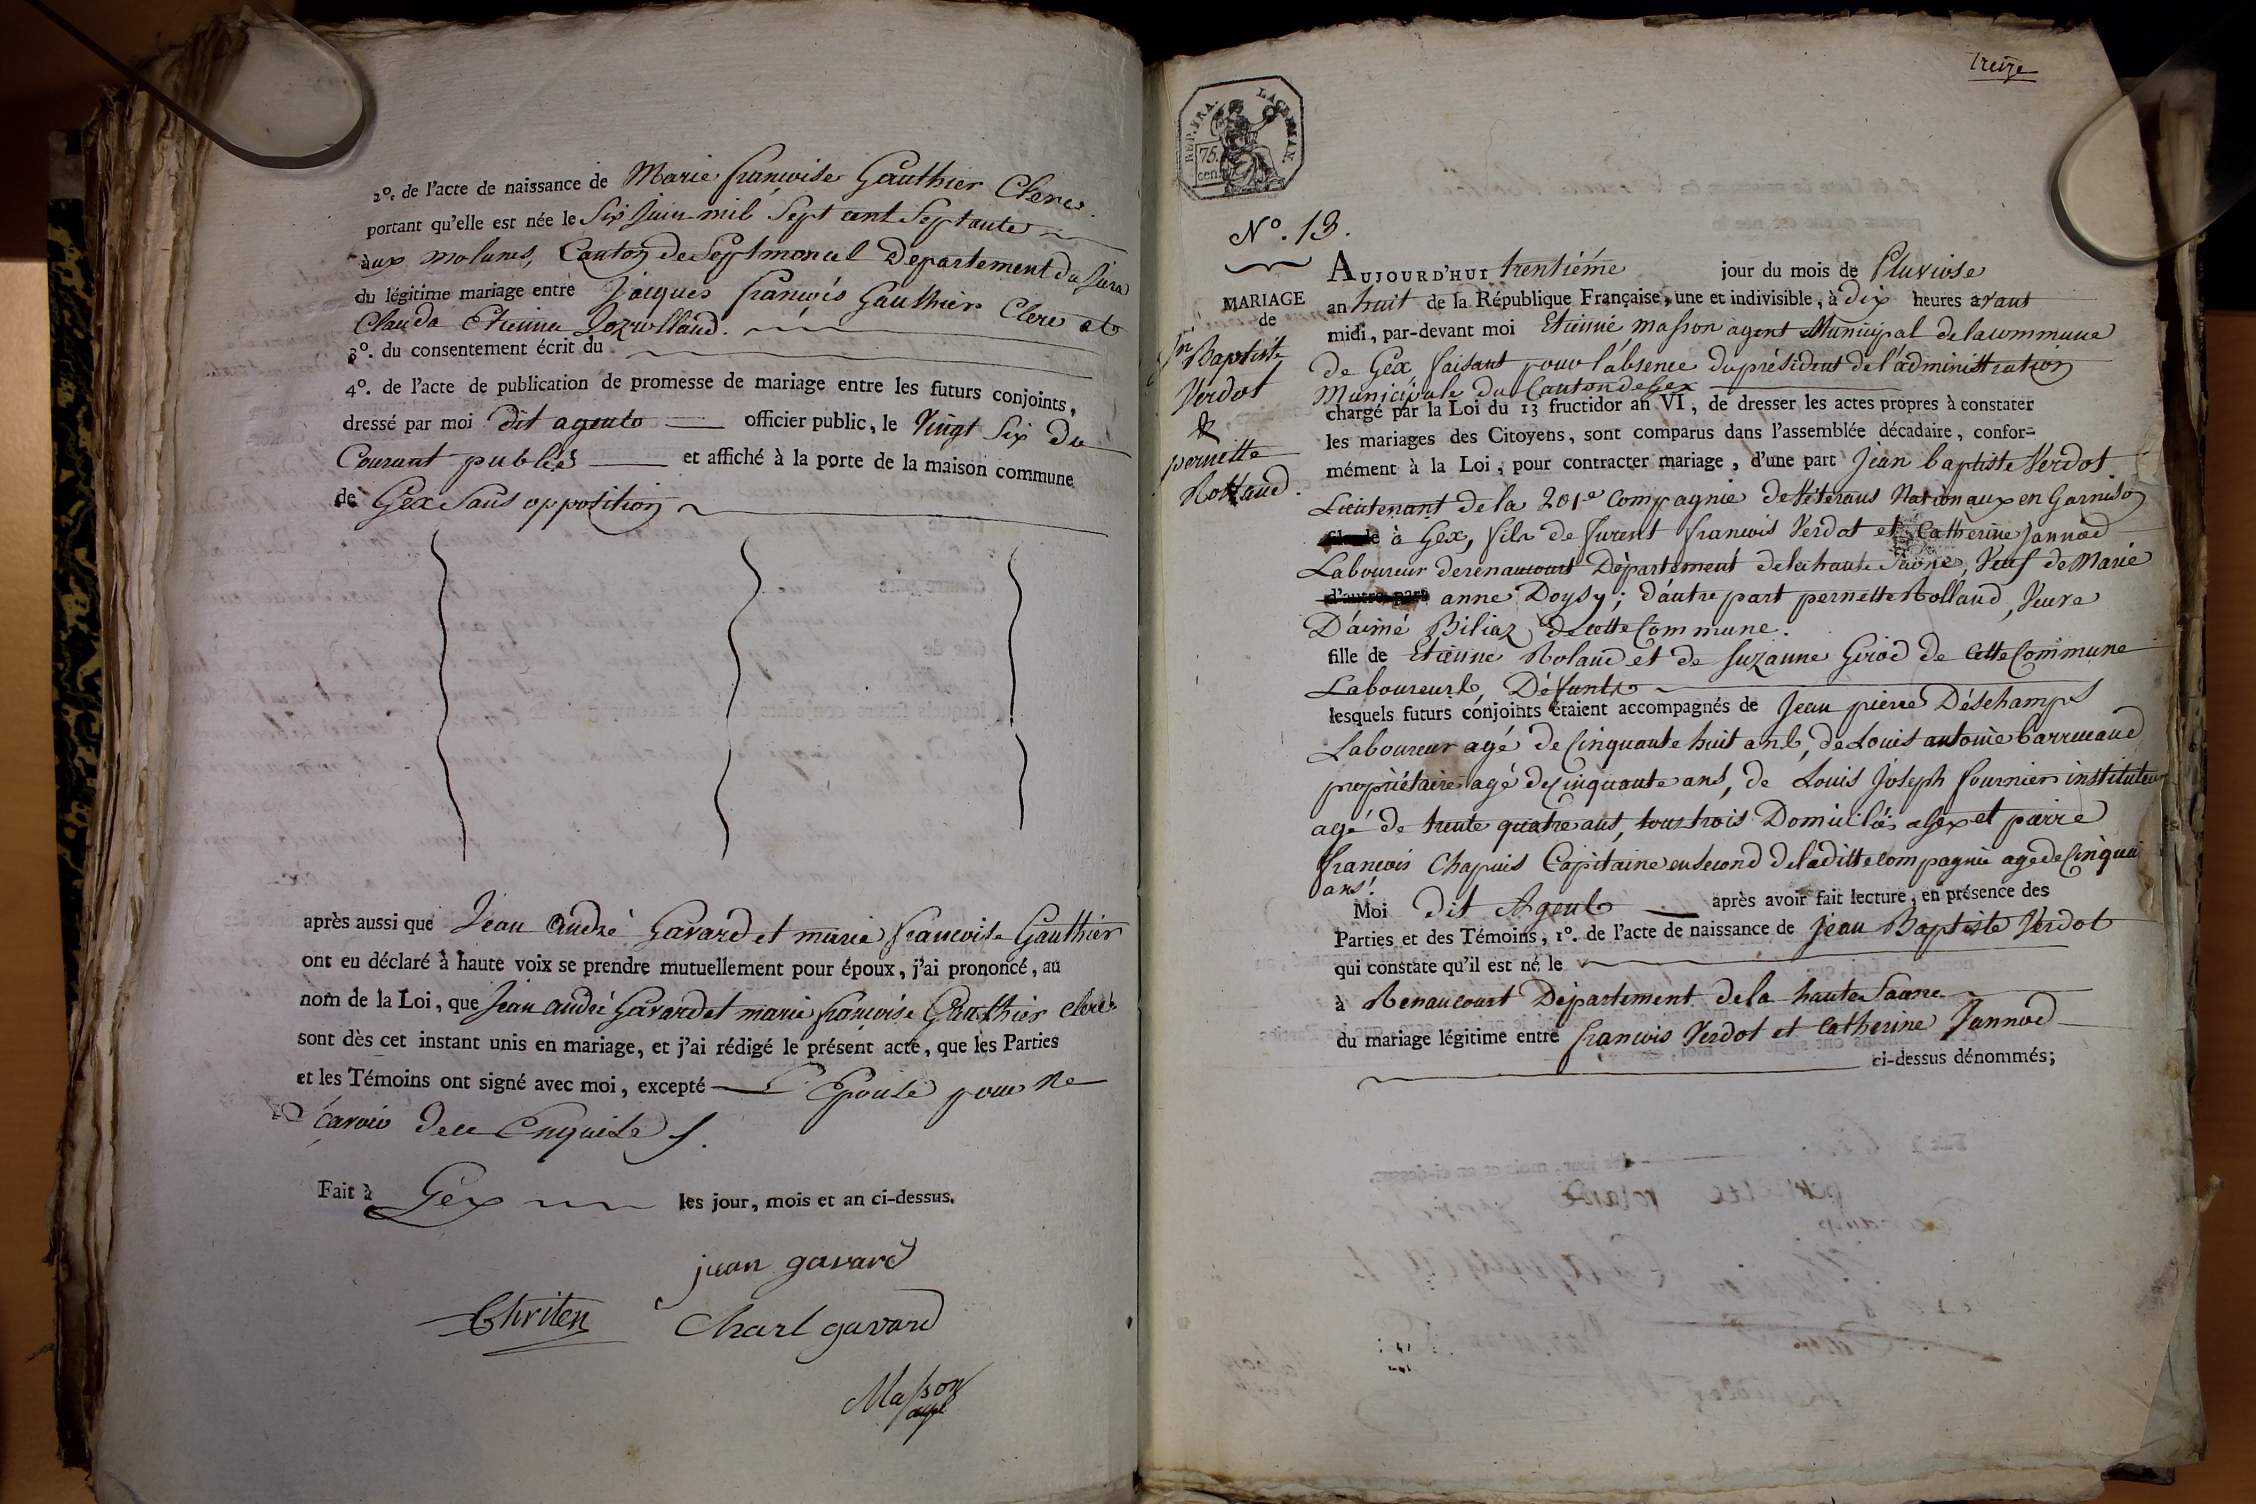 2º. de l'acte de naissance de Marie françoise Gauthier Clerc
portant qu'elle est née le Six Juin mil Sept cent Septante
aux molunes, Canton de Septmoncel Departement du Jura
du légitime mariage entre Jacques françois Gauthier Clerc et
Clauda Etienna
3º. du consentement écrit du
4º. de l'acte de publication de promesse de mariage entre les futurs conjoints,
dressé par moi dit agent officier public, le Vingt Six du
Courant publiés et affiché à la porte de la maison commune
de Gex Sans opposition
après aussi que Jean André Gavard et marie françoise Gauthier
ont eu déclaré à haute voix se prendre mutuellement pour époux, j'ai prononcé, au
nom de la Loi, que Jean André Gavard et marie françoise Gauthier clerc
sont dès cet instant unis en mariage, et j'ai rédigé le présent acte, que les Parties
et les Témoins ont signé avec moi, excepté L'Epouse pour ne
savoir de ce Enquise
Fait à Gex les jour, mois et an ci-dessus.
jean gavard
Chriten Charl gavard
Masson
agt
treize
REP. FRA. LA CHEMAN.
75.
cen.
Nº. 13.
MARIAGE
de
Jn
Baptiste
Verdot
&
pernette
Rolland.
AUJOURD'HUI trentiéme jour du mois de Pluviose
an huit de la République Française, une et indivisible, à dix heures avant
midi, par-devant moi Etienne masson agent Municipal de la commune
de Gex faisant pour l'absence du président de l'administration
Municipale du Canton de Gex
chargé par la Loi du 13 fructidor an VI, de dresser les actes propres à constater
les mariages des Citoyens, sont comparus dans l'assemblée décadaire, confor-
mément à la Loi, pour contracter mariage, d'une part Jean baptiste Verdot
Lieutenant de la 201e Compagnie de Véterans Nationaux en Garnison
à Gex, fils de furent francois Verdot et Catherine Jannod
Laboureur de renaucourt Département de la haute Saône, Veuf de Marie
d'autre part anne Doysy; d'autre part pernette Rolland, Veuve
D'aimé Biliaz de cette Commune.
fille de Etienne Roland et de Suzanne Girod de cette Commune
Laboureurs, Défunts
lesquels futurs conjoints étaient accompagnés de Jean pierre Déschamps
Laboureur agé de Cinquante huit ans, de Louis antoine barrucand
propriétaire agé de Cinquante ans, de Louis Joseph fournier instituteur
agé de trente quatre ans, tous trois Domiciliés a Gex et pierre
francois Chapuis Capitaine en Second de la ditte Compagnie agé de Cinquante
ans.
Moi dit Agent après avoir fait lecture, en présence des
Parties et des Témoins, 1º. de l'acte de naissance de Jean Baptiste Verdot
qui constate qu'il est né le
à Renaucourt Département de la haute Saone
du mariage légitime entre francois Verdot et Catherine Jannod
ci-dessus dénommés;